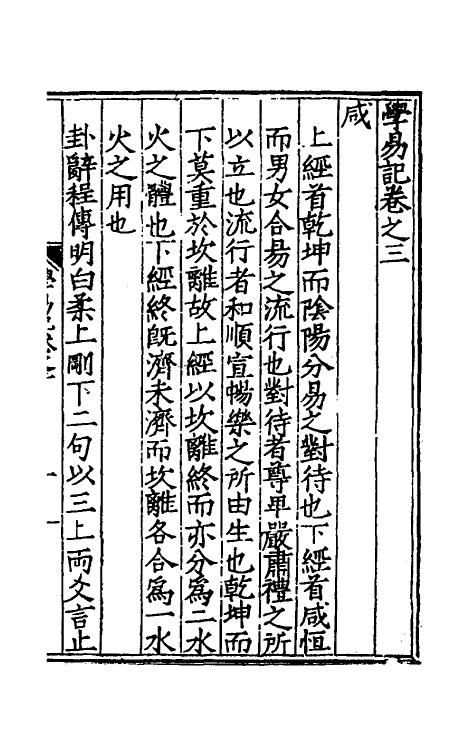 學易記卷之三
咸
上經首乾坤而陰陽分易之對待也下經首咸恒
而男女合易之流行也對待者尊卑嚴肅禮之所
以立也流行者和順宣暢樂之所由生也乾坤而
下莫重於坎離故上經以坎離終而亦分爲二水
火之體也下經終旣濟未濟而坎離各合爲一水
火之用也
卦辭程傳明白柔上剛下二句以三上兩爻言止